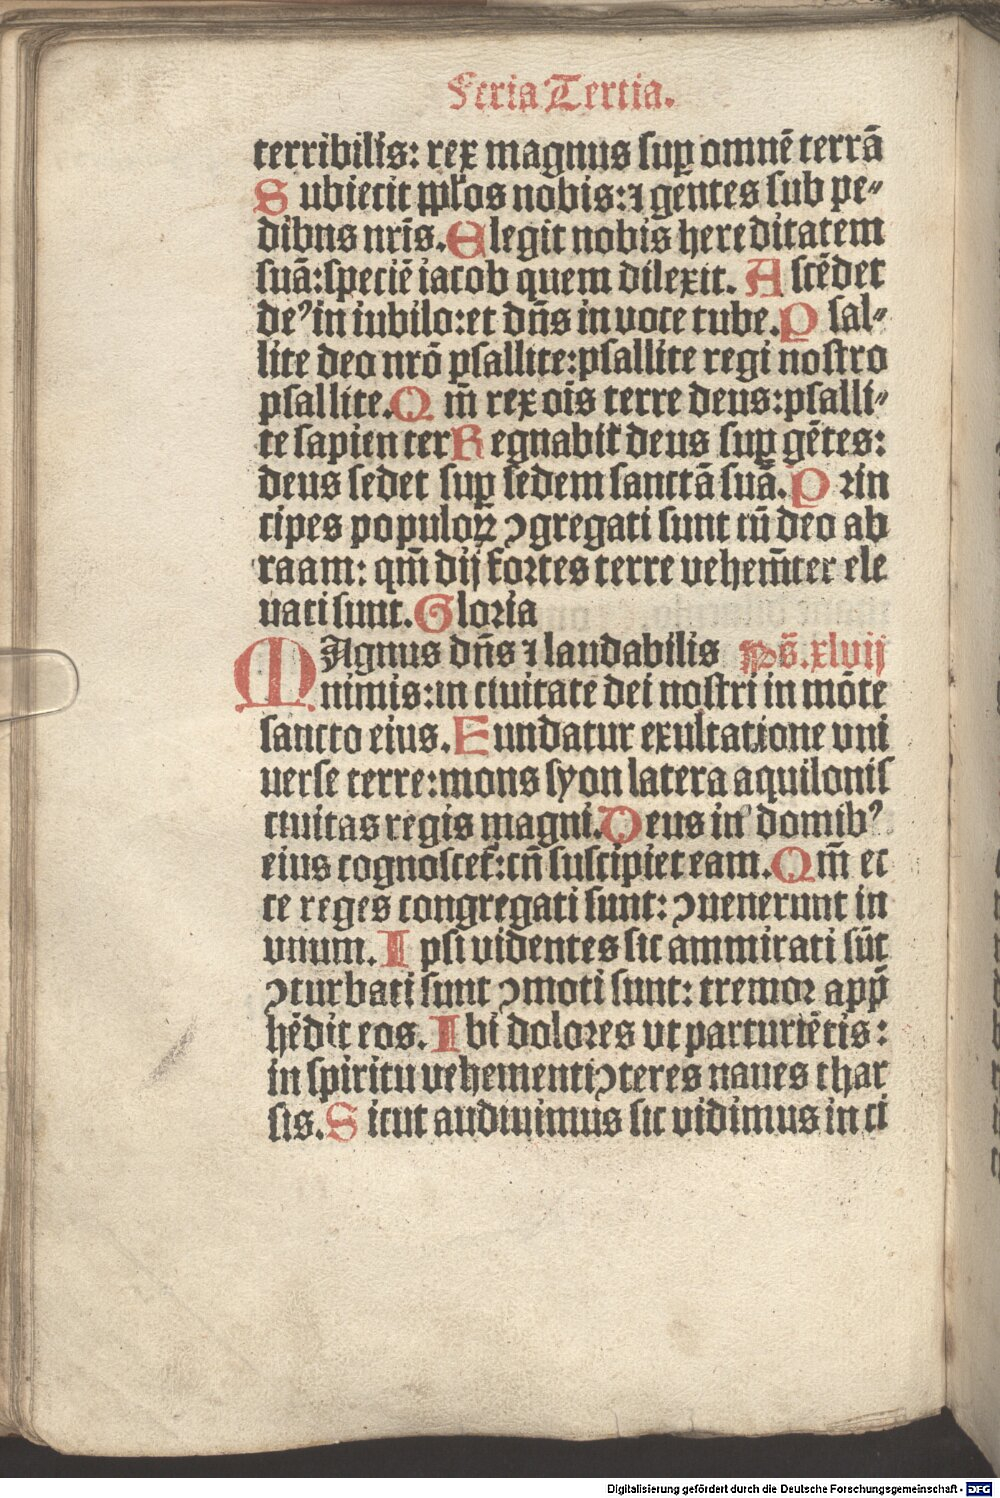 Feria Tertia.
terribilis: rex magnus suꝑ omnē terrā
Subiecit pp̄los nobis: ⁊ gentes sub pe⸗
dibus nr̄is. Elegit nobis hereditatem
suā: speciē iacob quem dilexit. Ascēdet
deꝰ in iubilo: et dn̄s in voce tube. Psal⸗
lite deo nrō psallite: psallite regi nostro
psallite. Qm̄ rex oīs terre deus: psalli⸗
te sapienter Regnabit deus suꝑ gētes:
deus sedet suꝑ sedem sanctā suā. Prin
cipes populoꝝ ꝯgregati sunt cū deo ab
raam: qm̄ dij fortes terre vehem̄ter ele
uati sunt. Gloria
MAgnus dn̄s ⁊ laudabilis Ps̄. xlvij
nimis: in ciuitate dei nostri in mōte
sancto eius. Fundatur exultatione vni
uerse terre: mons syon latera aquilonis
ciuitas regis magni. Deus in domibꝰ
eius cognoscet᷑: cū suscipiet eam. Qm̄ ec
ce reges congregati sunt: ꝯuenerunt in
vnum. Ipsi videntes sic ammirati sūt
ꝯturbati sunt ꝯmoti sunt: tremor app̄
hēdit eos. Ibi dolores vt parturiētis:
in spiritu vehementi ꝯteres naues thar
sis. Sicut audiuimus sic vidimus in ci
Digitalisierung gefördert durch die Deutsche Forschungsgemeinschaft - DFG